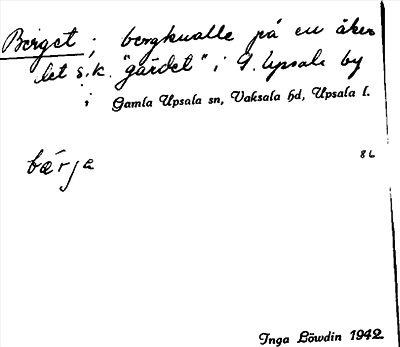 Berget; bergkulle på en åker
let s.k. "gärdet" i G. Upsala by
i Gamla Upsala sn, Vaksala hd, Upsala l.
bærja
86
Inga Löwdin 1942.